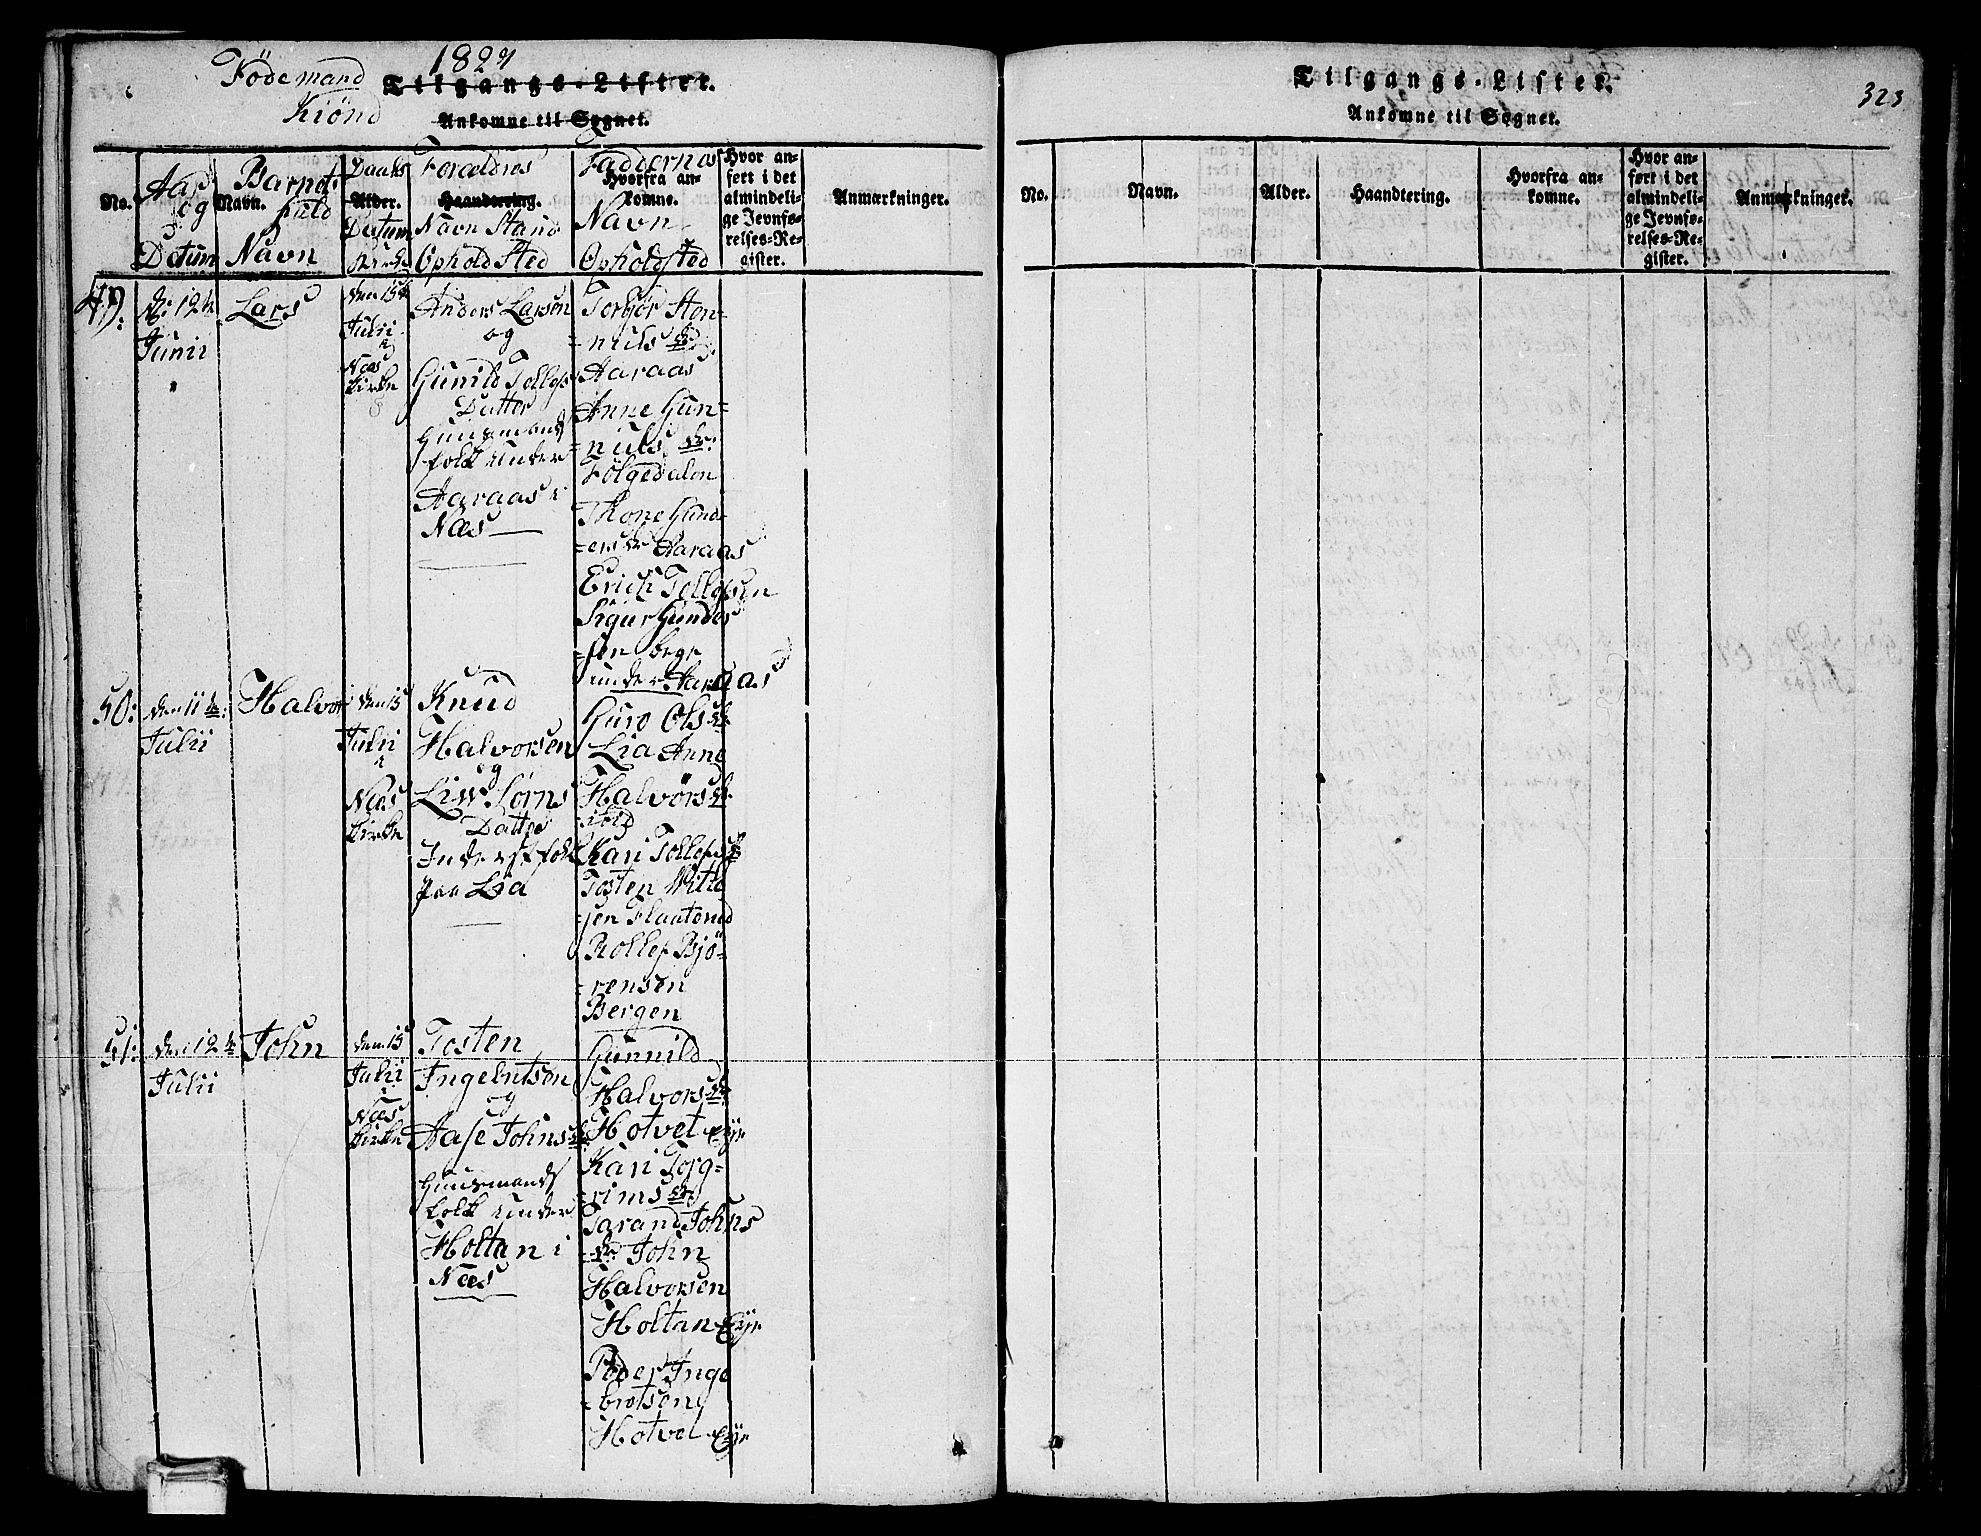 Föde mand 1827
Kiönd
Tilgangs-Lister.
Ankomne til Sognet.
No.
Aar og Datum
Navn.
Barnets fuld Navn
Alder.
Daabs Datum
Haandtering.
Forældres Navn Stand Ophold Sted
Hvorfra ankomne.
Faddernes Navn Opholdsted
Hvor an-
ført i det
almindeli-
ge Jevnfø-
relses-Re-
gister.
Anmærkninger.
49:
12te
Junii
Lars
den 15de
Julii
Næs
kirke
Anders Larsen
og
Gunild Tollefs
Datter
Huusmands
folk under
Aaraas i
Næs
Torbør
nuls dr:
Aaraas
Anne Gun=
=nuls dr:
Følgedalen
Thone Gund=
=ers dr Aaraas
Erich Tollefsen
Sigur Gunders
=sen
under Aaraas
50:
den 11te:
Julii
Halvor
den 15
Julii
i
Næs
kirke
Knud
Halvorsen
og
Liw Jørns
Datter
Inderstfolk
paa Lia
Guro Ols dr
Lia Anne
Halvors dr
ibid
Kari Tollefs dr
Tosten
=sen Flaaterud
Rollef Bjö=
=rensen
Bergen
51:
den 12te
Julii
John
den 15
Julii
i
Næs
kirke
Tosten
Ingebretsen
og
Aase Johns dr
Huusmands
folk under
Holtan i
Næs
Gunnild
Halvors dr
Hotvet eye
Kari Torg=
=rims dr
Tarand Johns
=dr. John
Halvorsen
Holtan Eye
Peder Inge
=bretsen
Hotvet Eye
Tilgangs-Lister.
323
Ankomne til Sognet.
No.
Navn.
Alder.
Haandtering.
Hvorfra an-
komne.
Hvor an-
ført i det
almindeli-
ge Jevnfø-
relses-Re-
gister.
Anmærkninger.